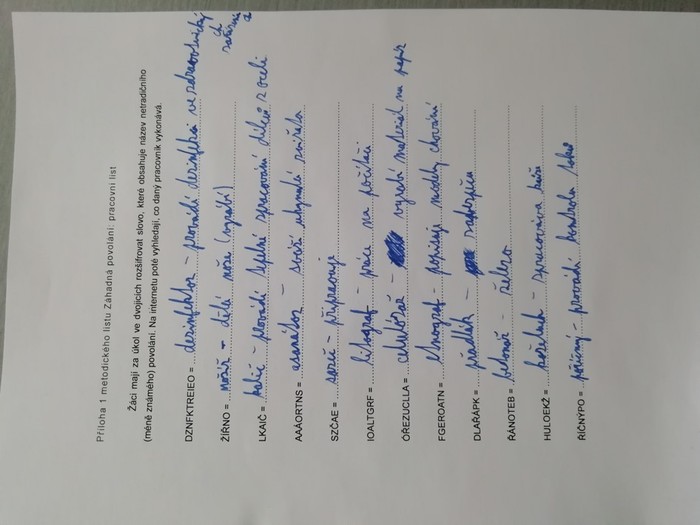 Příloha 1 metodického listu Záhadná povolání: pracovní list
Žáci mají za úkol ve dvojicích rozšifrovat slovo, které obsahuje název netradičního
(méně známého) povolání. Na internetu poté vyhledají, co daný pracovník vykonává.
DZNFKTREIEO = dezinfektor – provádí dezinfekci ve zdravotnický
ch zařízení
ŽÍŘNO = nožíř – dělá nože (vyrábí)
LKAIČ = kalič – provádí tepelné zpracování dílců z oceli
AAÁORTNS = asanátor – sváží uhynulá zvířata
SZČAE = sazeč – připravuje
IOALTGRF = litograf – práce na počítači
ÓŘEZUCLLA = celulózař – vyrábí materiál na papír
FGEROATN = etnograf – popisuje modely chování
DLAŘAPK = přadlák –
ŘÁNOTEB = betonář – železo
HULOEKŽ = koželuh – zpracovává kůži
ŘIČNÝPO = příčný – provádí kontrolu